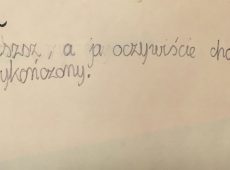 szosz, a ja oczywiście cho
ykończony.